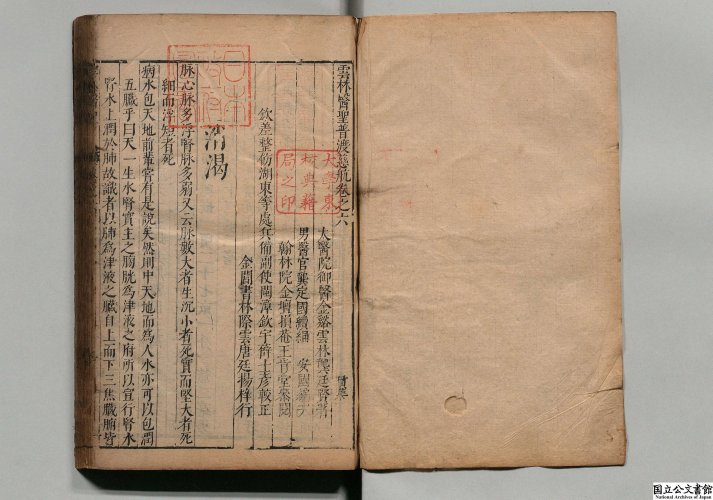 雲林醫聖普渡慈航卷之六
太醫院御醫金谿雲林龔廷賢著
男醫官龔定國續編
翰林院金壇損菴王肯堂叅閱
欽差整飭湖東等處兵備副使閩漳欽宇蔣士彥較正
金閶書林際雲唐廷揚梓行
消渴
脉心脉多浮腎脉多弱又云脉數大者生沉小者死實而堅大者死
細而浮短者死
病水包天地前輩嘗有是說矣然則中天地而爲人水亦可以包潤
五臟乎曰天一生水腎實主之膀胱爲津液之府所以宣行腎水
腎水上潤於肺故識者以肺爲津液之臟自上而下三焦臟腑皆
大學東
校典籍
局之印
日本
政府
圖書
国立公文書館
National Archives of Japan